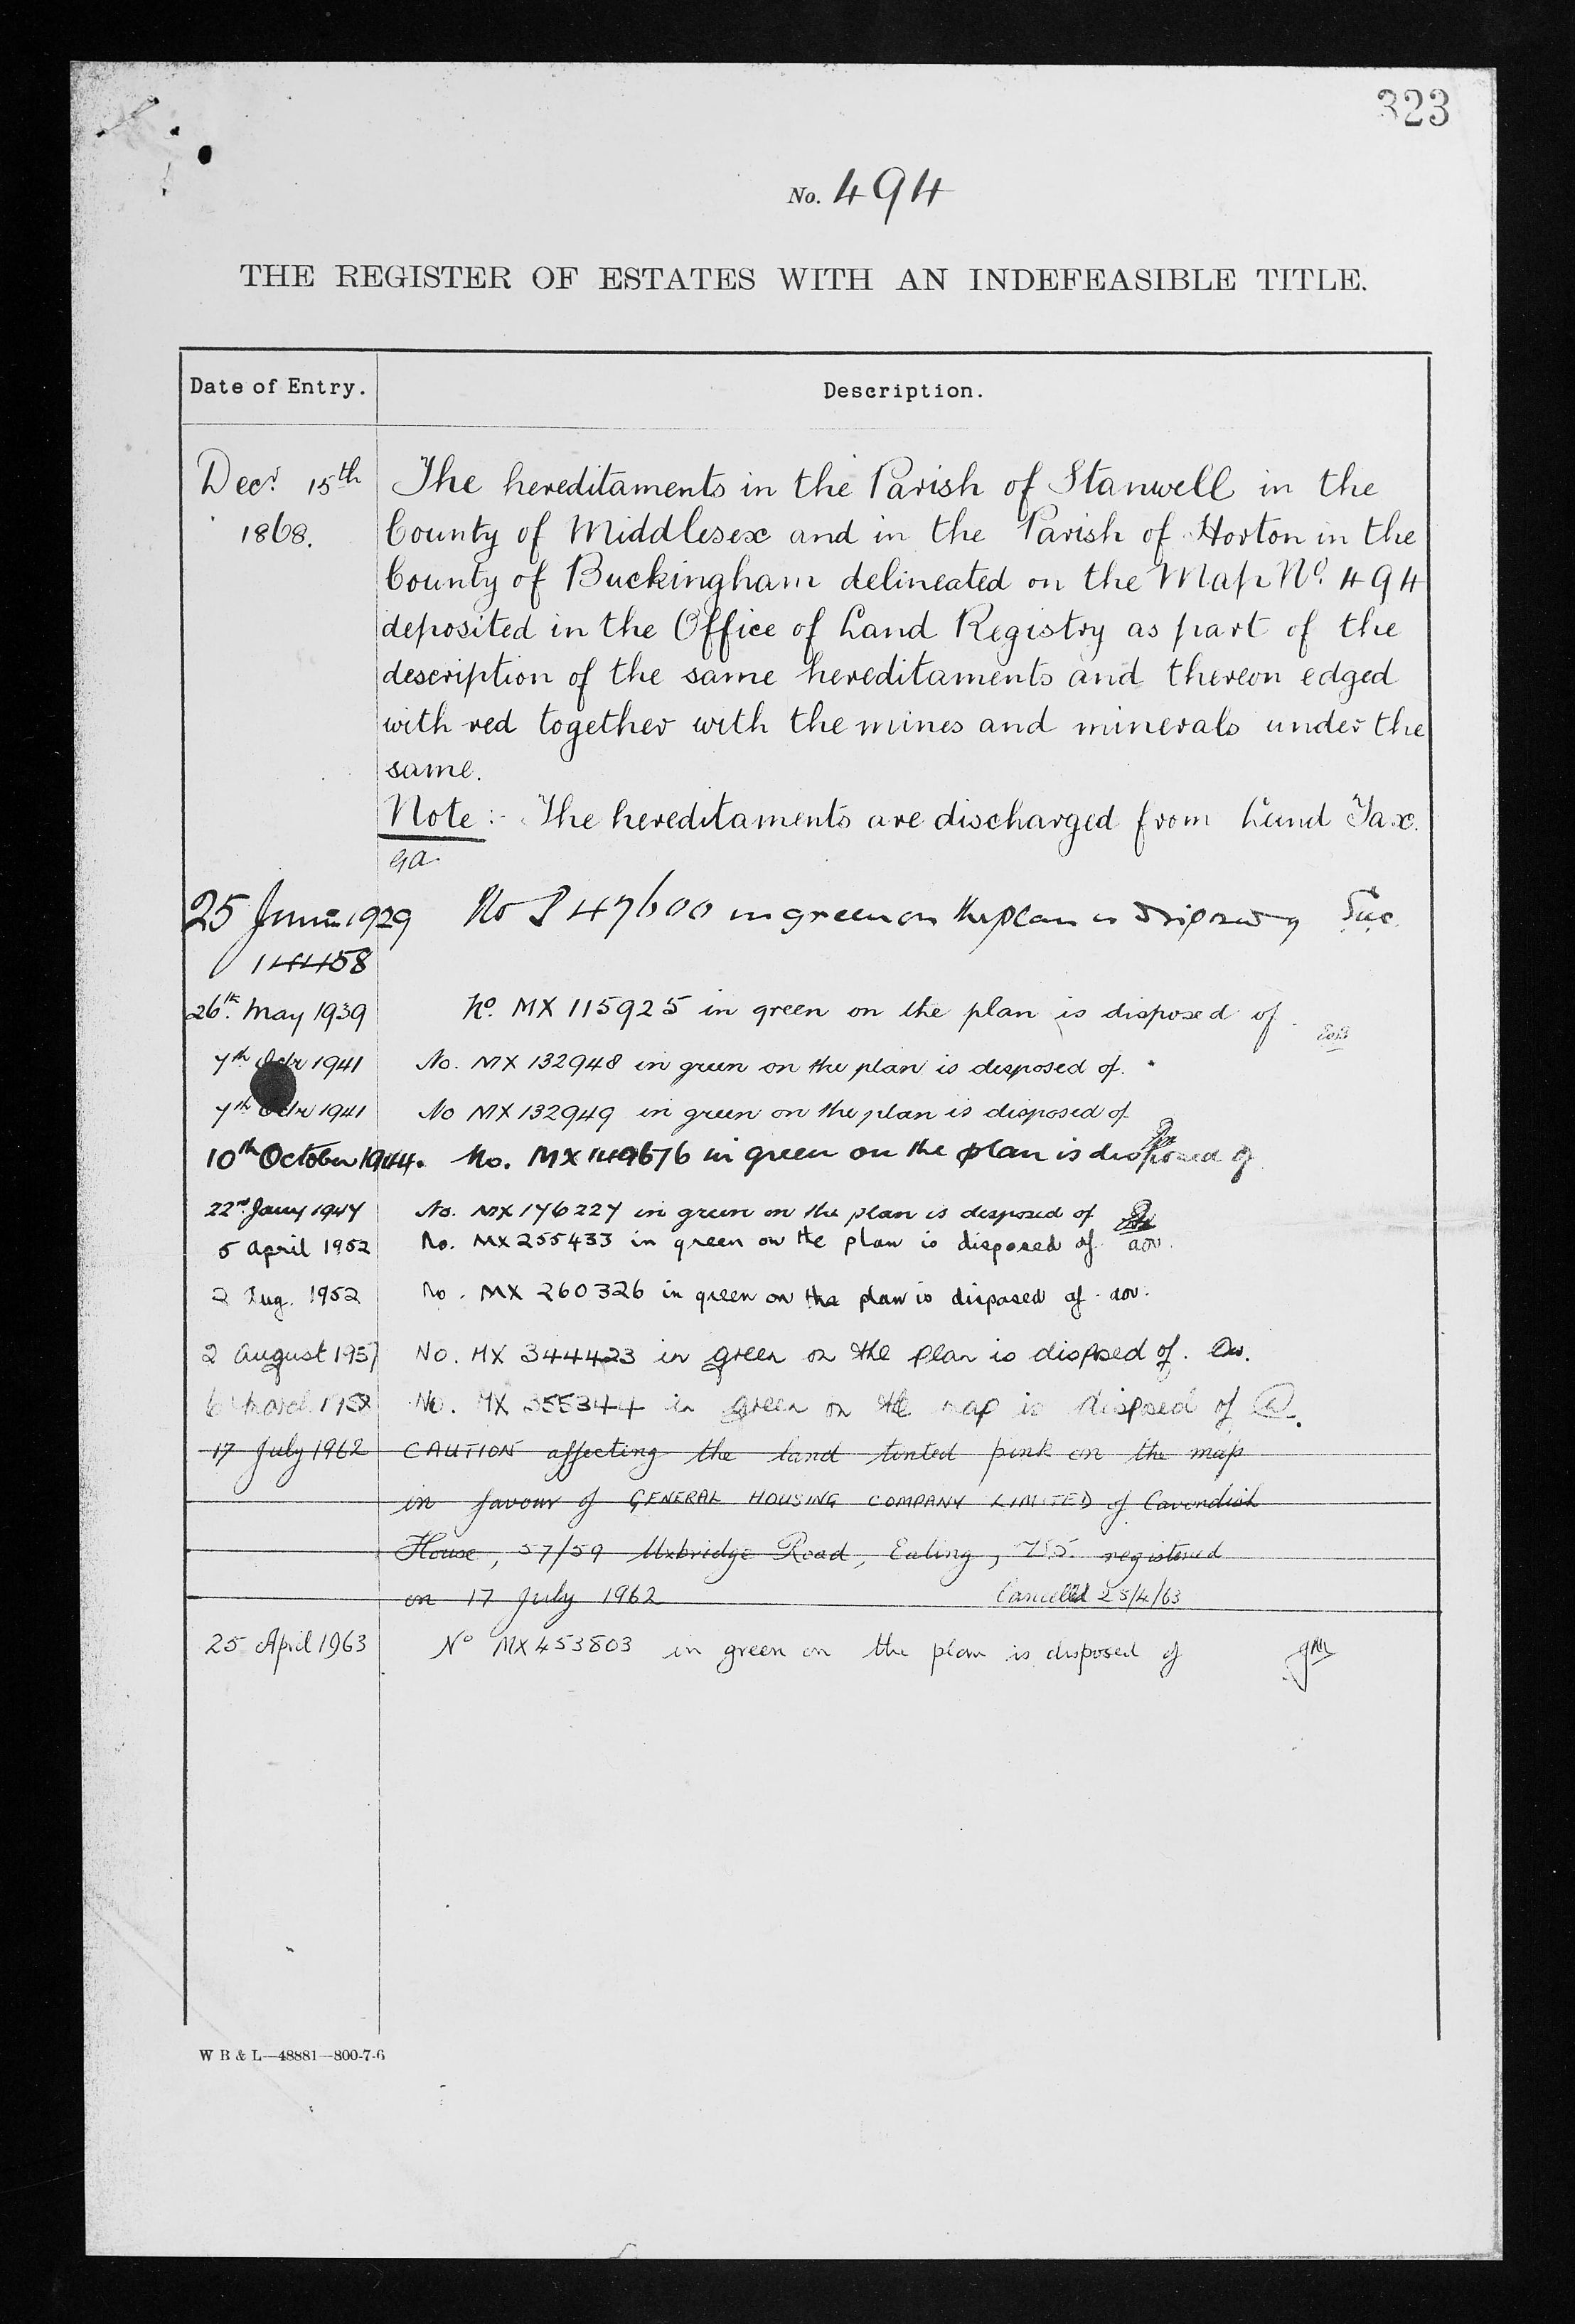 323
No. 494
THE REGISTER OF ESTATES WITH AN INDEFEASIBLE TITLE.
Date of Entry. Description.
Decr. 15th The hereditaments in the Parish of Stanwell in the
1868. County of Middlesex and in the Parish of Horton in the
County of Buckingham delineated on the Map No. 494
deposited in the Office of Land Registry as part of the
description of the same hereditaments and thereon edged
with red together with the mines and minerals under the
same.
Note :- The hereditaments are discharged from Land Tax.
25 June 1929 No P 47600 in green on the plan is disposed of
14458
26th May 1939 No. MX 115925 in green on the plan is disposed of.
7th Octr 1941 No. MX 132948 in green on the plan is disposed of.
7th Octr 1941 No MX 132949 in green on the plan is disposed of
10th October 1944. No. MX 149676 in green on the plan is disposed of
22nd Jany 1947 No. MX 176227 in green on the plan is disposed of
5 April 1952 No. MX 255433 in green on the plan is disposed of aov.
2 Aug. 1952 No. MX 260326 in green on the plan is disposed of. aov.
2 August 1957 No. MX 344423 in green on the plan is disposed of.
6 March 1958 No. MX 355344 in green on the map is disposed of
17 July 1962 CAUTION affecting the land tinted pink on the map
in favour of GENERAL HOUSING COMPANY LIMITED of Cavendish
House, 57/59 Uxbridge Road, Ealing, W.5. registered
on 17 July 1962 Cancelled 25/4/63
25 April 1963 No MX453803 in green on the plan is disposed of
W B & L—48881—800-7-6